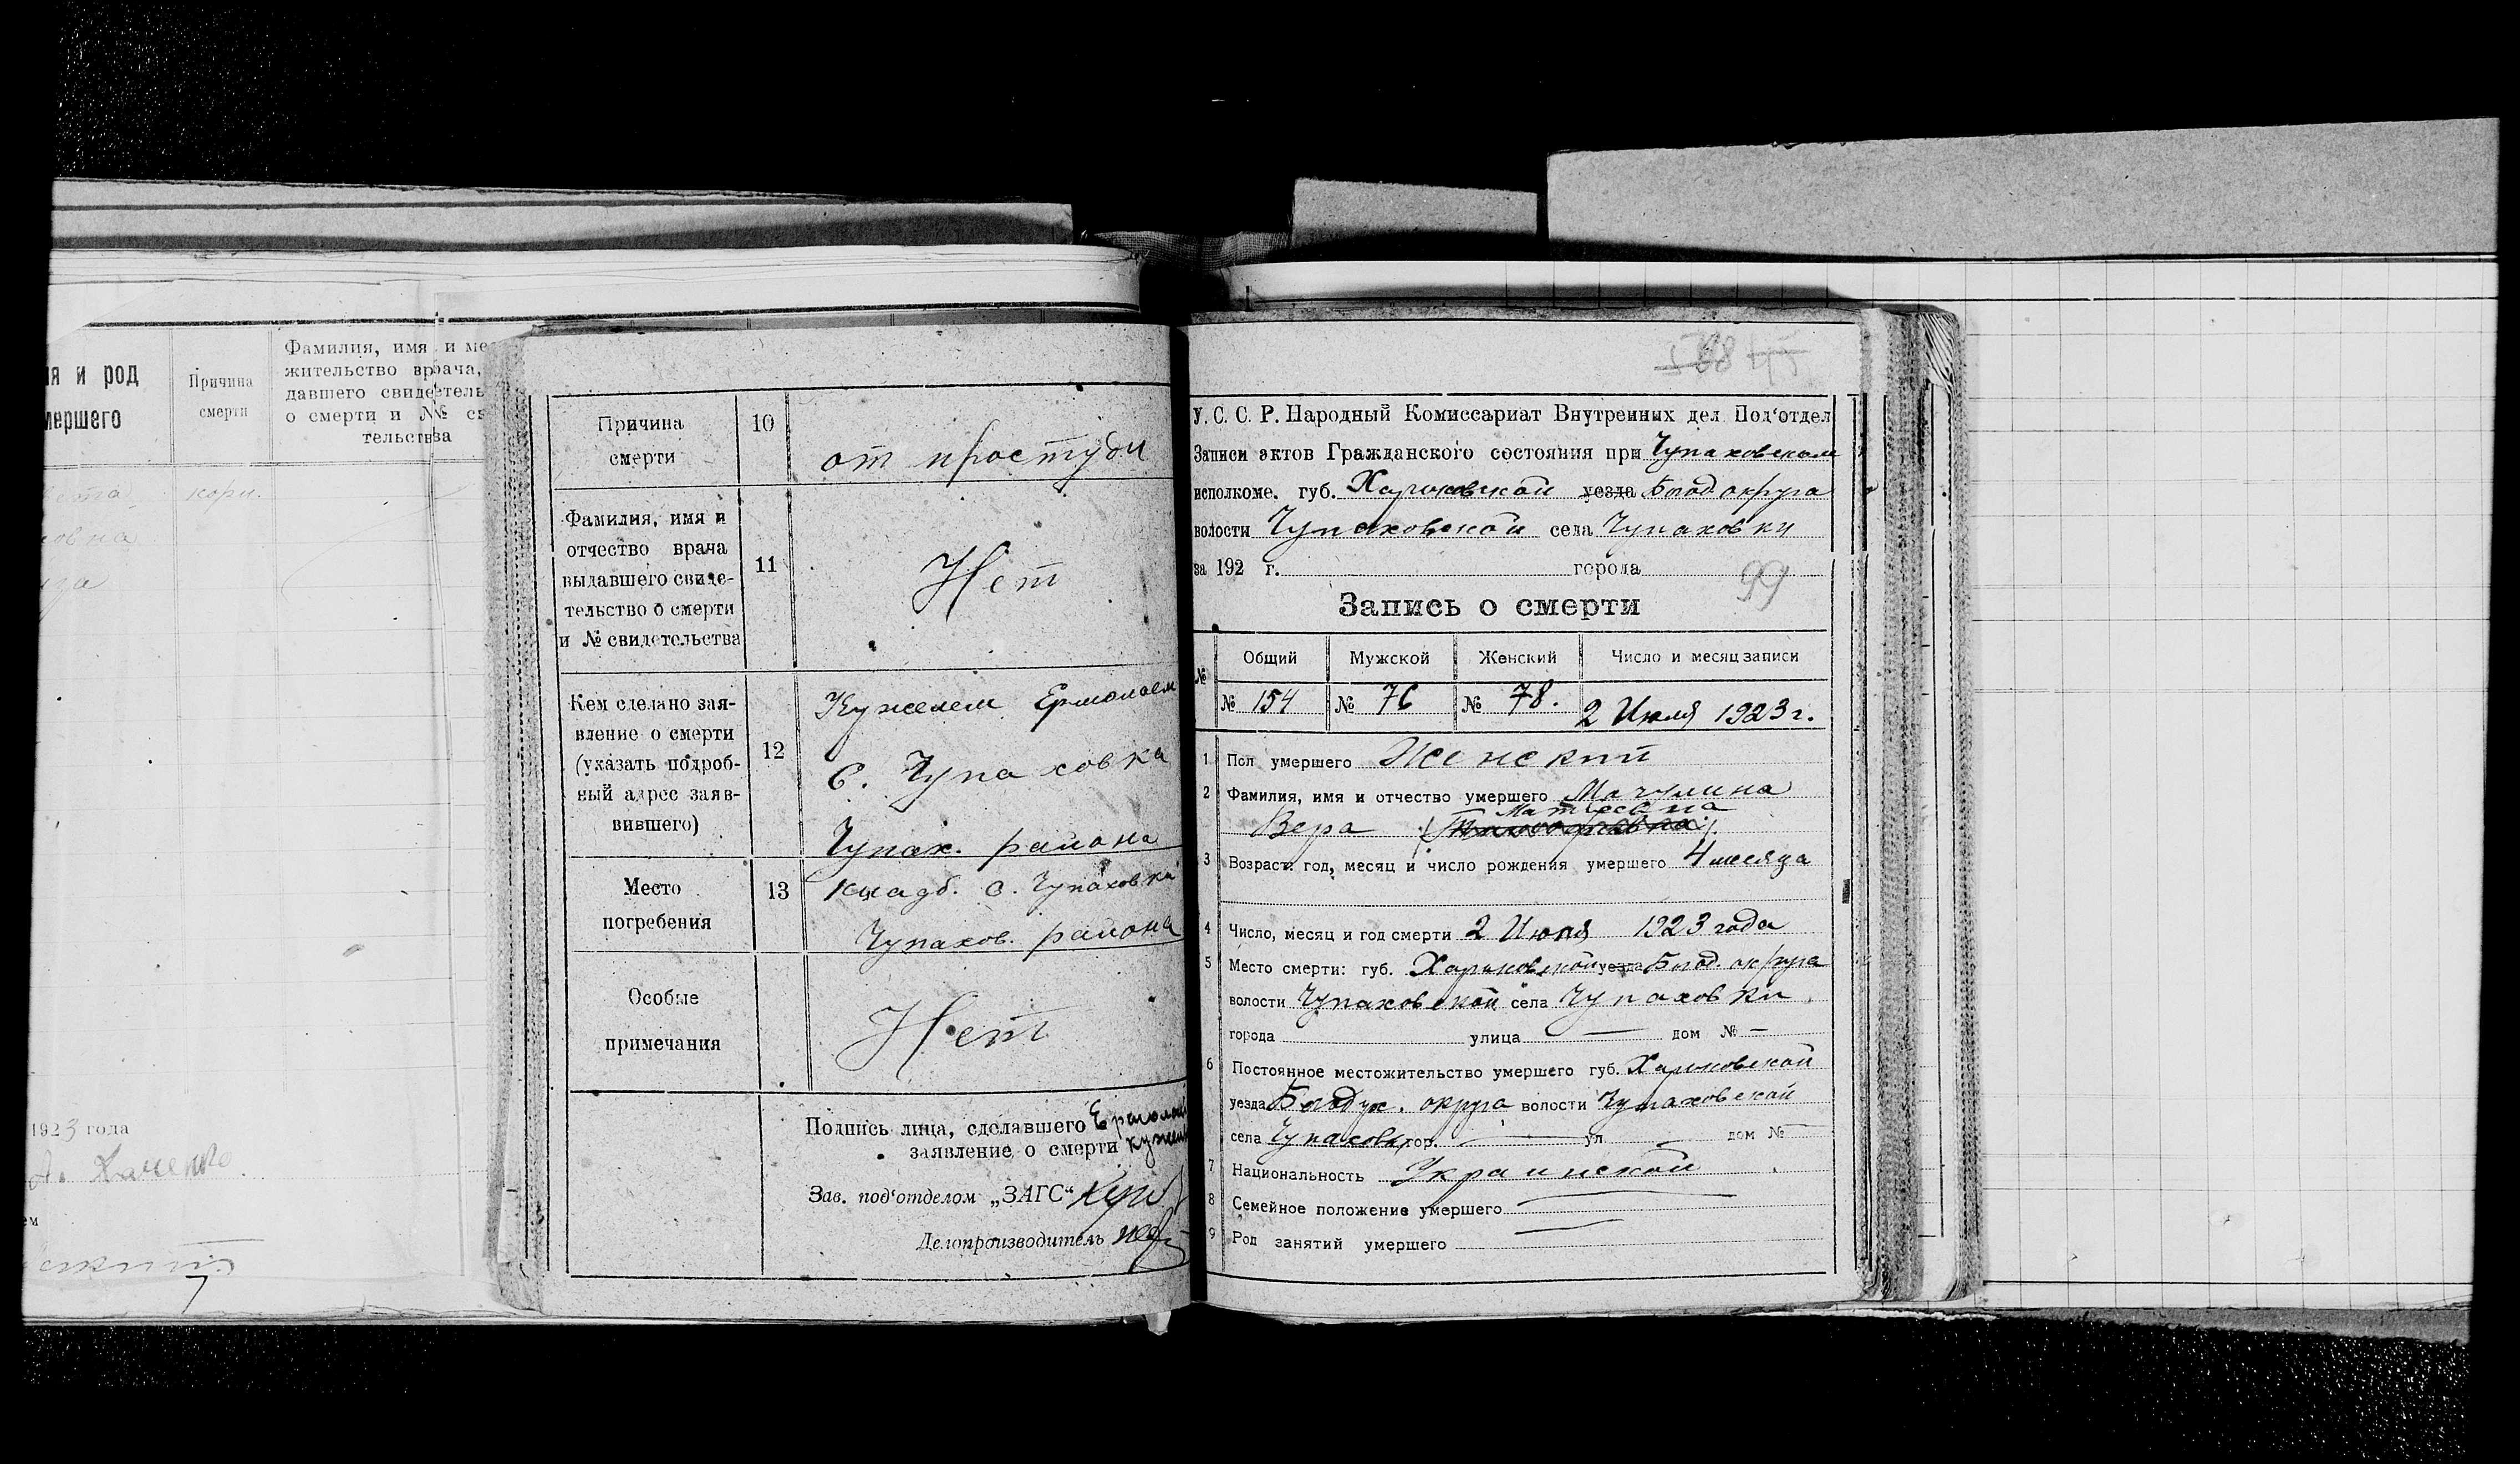 и род
мершего
Причина
смерти
Фамилия, имя и ме
жительство врача,
давшего свидетель
о смерти и №
тельства
кори.
овна
1923 года
Причина
смерти
10
от простуди
Фамилия, имя и
отчество врача
выдавшего свиде-
тельство о смерти
и № свидетельства
11
Нет
Кем сделано зая-
вление о смерти
(указать подроб-
ный адрес заяв-
вившего)
12
Кужелем Ермолаем
С. Чупаховка
Чупах. района
Место
погребения
13
кладб. с. Чупаховки
Чупахов. района
Особые
примечания
Нет
Подпись лица, сделавшего
заявление о смерти
Зав. под'отделом „ЗАГС“
Делопроизводитель
У. С. С. Р. Народный Комиссариат Внутренних дел Под'отдел
Записи актов Гражданского состояния при Чупаховском
исполкоме. губ. Харьковской уезда Богод округа
волости Чупаховской села Чупаховки
за 192 г. города
99
Запись о смерти
№ Общий Мужской Женский Число и месяц записи
№ 154 № 76 № 78. 2 Июля 1923 г.
1 Пол умершего Женский
2 Фамилия, имя и отчество умершего Мачулина
Матфеевна
Вера
3 Возраст: год, месяц и число рождения умершего 4 месяца
4 Число, месяц и год смерти 2 Июля 1923 года
5 Место смерти: губ. Харьковской уезда Богод. округа
волости Чупаховской села Чупаховки
города улица — дом № —
6 Постоянное местожительство умершего губ. Харьковской
уезда Богодух. округа волости Чупаховской
села Чупаховки гор. — ул. — дом № —
7 Национальность Украинской
8 Семейное положение умершего —
9 Род занятий умершего —